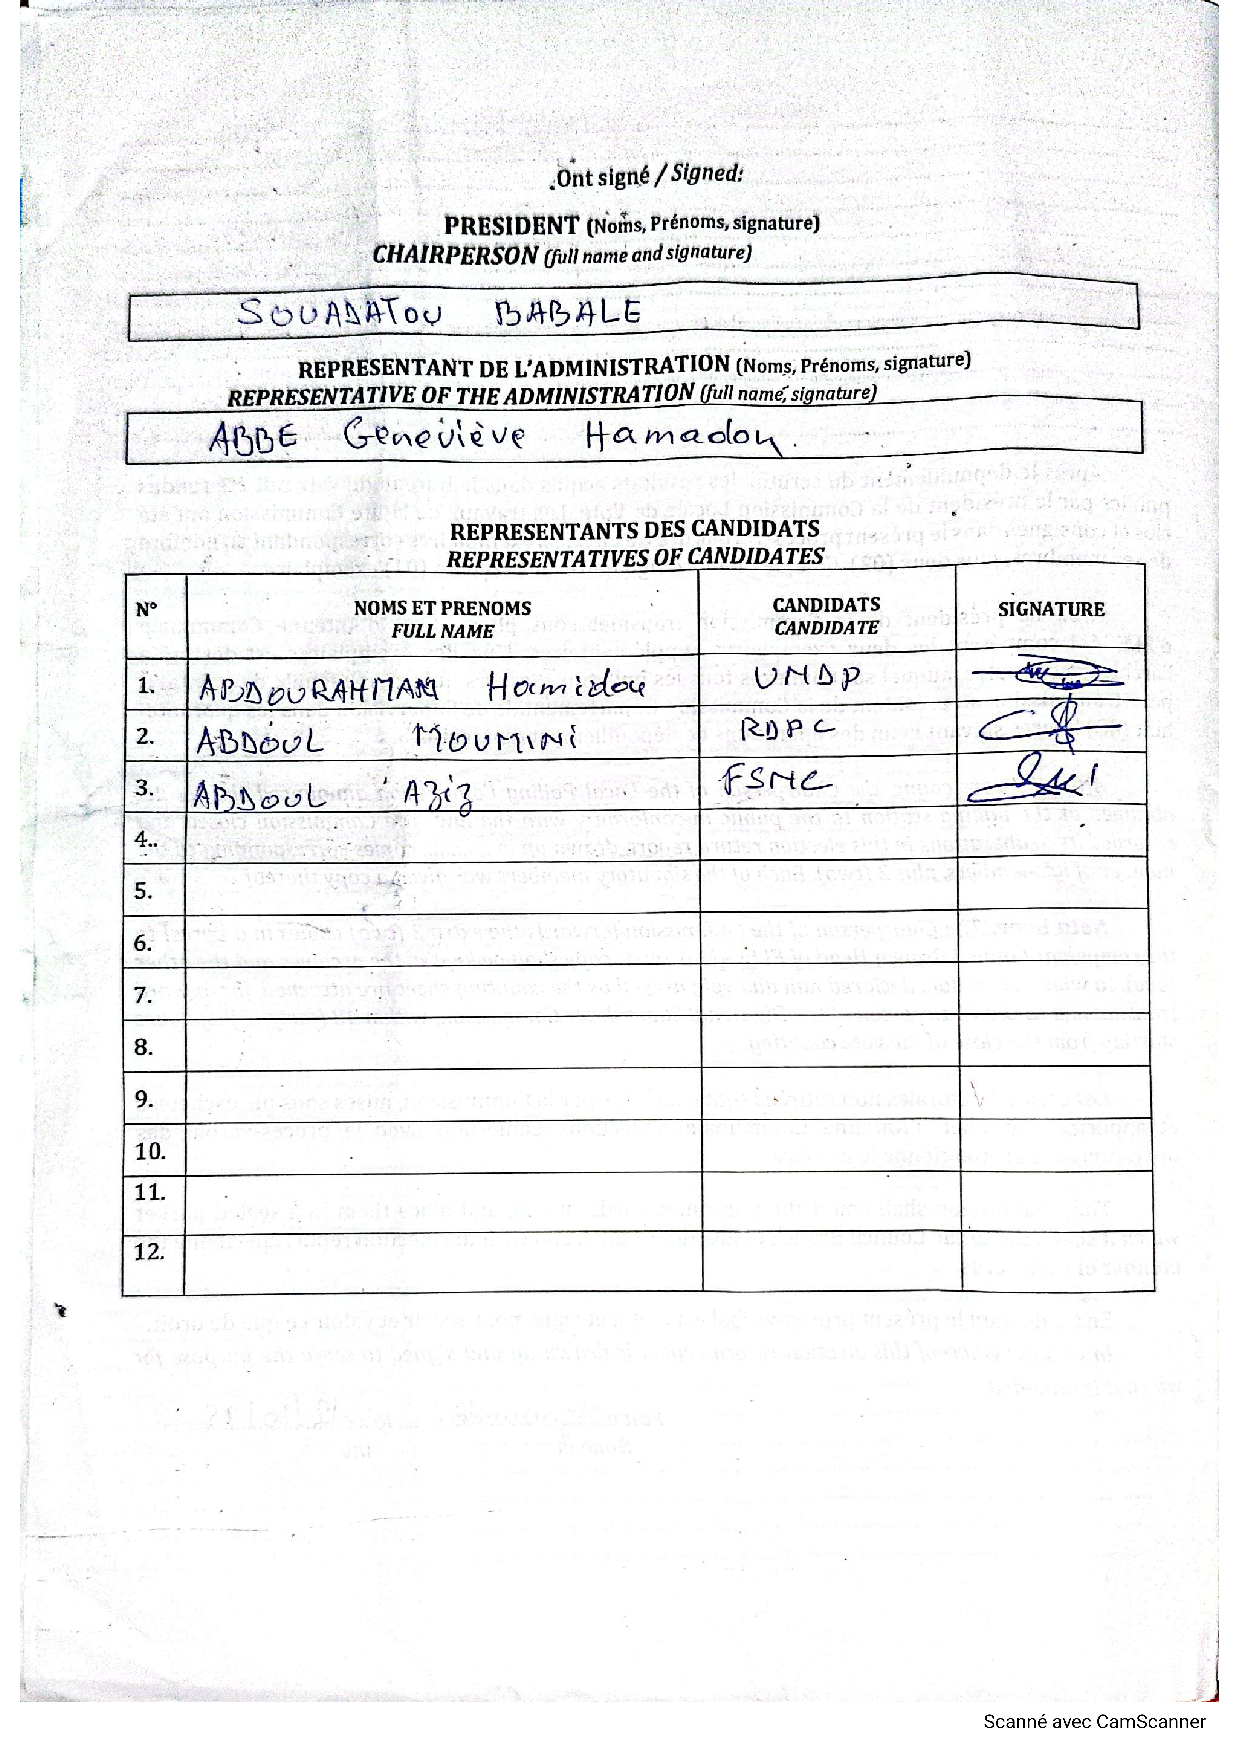 Ont signé / Signed:
PRESIDENT (Noms, Prénoms, signature)
CHAIRPERSON (full name and signature)
SOUADATOU BABALE
REPRESENTANT DE L'ADMINISTRATION (Noms, Prénoms, signature)
REPRESENTATIVE OF THE ADMINISTRATION (full name, signature)
ABBE Geneviève Hamadou.
REPRESENTANTS DES CANDIDATS
REPRESENTATIVES OF CANDIDATES
N° NOMS ET PRENOMS CANDIDATS SIGNATURE
FULL NAME CANDIDATE
1. ABDOURAHMAN Hamidou UNDP
2. ABDOUL MOUMINI RDPC
3. ABDOUL Aziz FSNC
4.
5.
6.
7.
8.
9.
10.
11.
12.
Scanné avec CamScanner